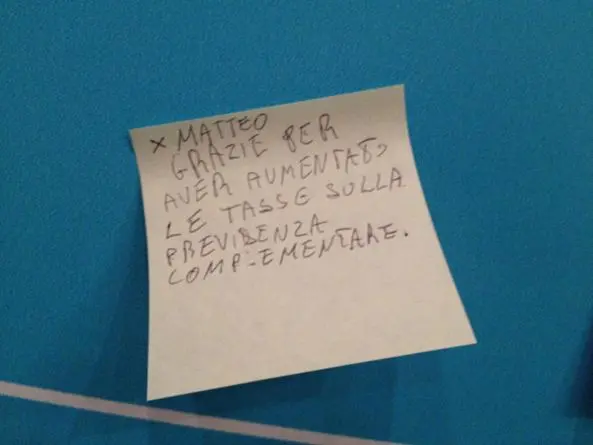 × MATTEO
GRAZIE PER
AVER AUMENTATO
LE TASSE SULLA
PREVIDENZA
COMPLEMENTARE.